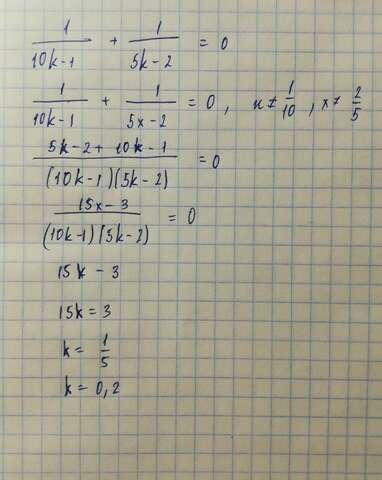 1/(10k-1) + 1/(5k-2) = 0
1/(10k-1) + 1/(5x-2) = 0, x ≠ 1/10, x ≠ 2/5
(5k-2+10k-1)/((10k-1)(5k-2)) = 0
(15x-3)/((10k-1)(5k-2)) = 0
15k - 3
15k = 3
k = 1/5
k = 0,2